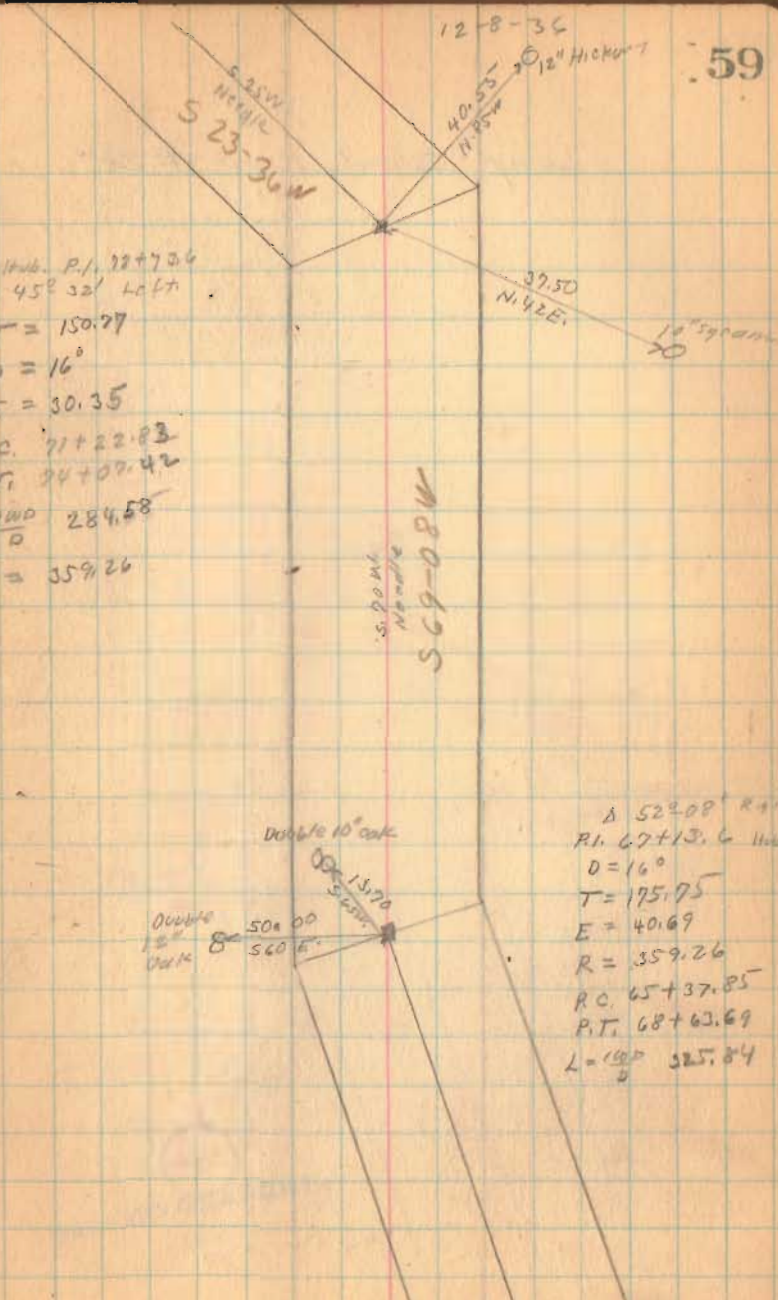 12-8-36
59
12" Hickory
40.55
N.85W
S.25W
Needle
S 23-36W
Hub. P.I. 72+73.6
45° 32' Left
= 150.77
= 16°
= 30.35
C. 71+22.83
T. 74+07.42
284.58
= 359.26
37.50
N.42E.
10" Sycam
S.70W.
Needle
S69-08W
Double 10" oak
13.70
S.65W.
Double
12"
Oak
50.00
S60E.
Δ 52°-08' Rt
P.I. 67+13.6 Hub
D = 16°
T = 175.75
E = 40.69
R = 359.26
P.C. 65+37.85
P.T. 68+63.69
L = 100D/D 325.84